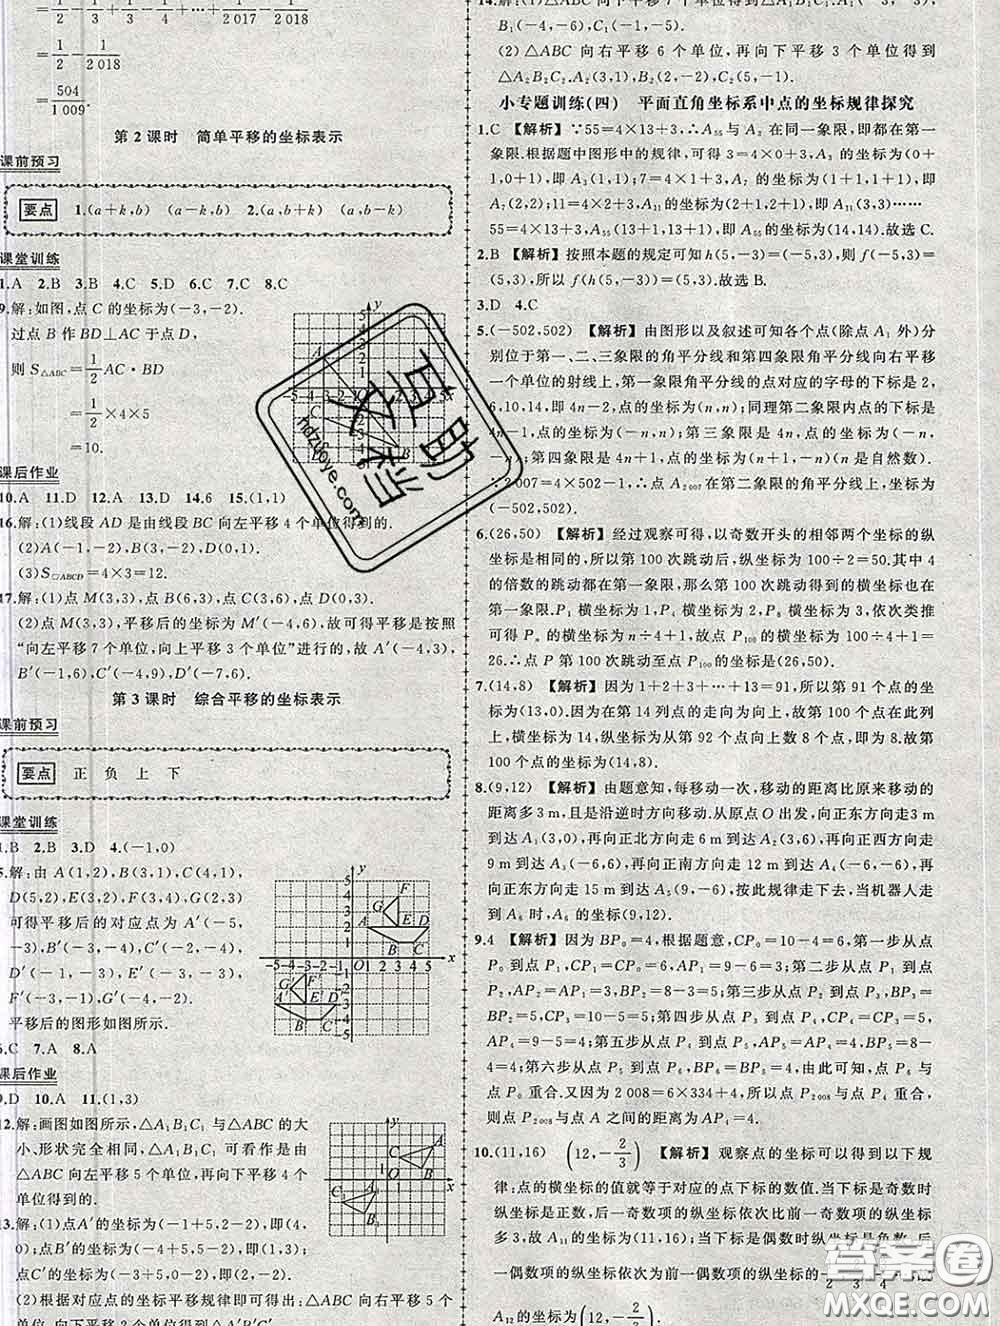 =1/2-1/2018
=504/1009.
第2课时　简单平移的坐标表示
课前预习
要点 1.(a+k,b)　(a-k,b)　2.(a,b+k)　(a,b-k)
课堂训练
1.A　2.B　3.B　4.C　5.D　6.C　7.C　8.C
9.解:如图,点C的坐标为(-3,-2).
过点B作BD⊥AC于点D,
则S△ABC=1/2AC·BD
=1/2×4×5
=10.
课后作业
10.A　11.D　12.A　13.D　14.6　15.(1,1)
16.解:(1)线段AD是由线段BC向左平移4个单位得到的.
(2)A(-1,-2),B(3,-2),D(-1,1).
(3)S□ABCD=4×3=12.
17.解:(1)点M(3,3),点B(6,3),点C(3,6),点D(0,3).
(2)点M(3,3),平移后的坐标为M′(-4,6),故可得平移是按照
“向左平移7个单位,向上平移3个单位”进行的,故A′(-4,3),
B′(-1,6),C′(-4,9),D′(-7,6).
第3课时　综合平移的坐标表示
课前预习
要点　正　负　上　下
课堂训练
1.B　2.B　3.D　4.(-1,0)
5.解:由A(1,2),B(3,1),C(4,1),
D(5,2),E(3,2),F(3,4),G(2,3)
可得平移后的对应点为A′(-5,
-3),B′(-3,-4),C′(-2,-4),
D′(-1,-3),E′(-3,-3),
F′(-3,-1),G′(-4,-2).
平移后的图形如图所示.
6.C　7.A　8.A
课后作业
9.D　10.A　11.(1,3)
12.解:画图如图所示,△A₁B₁C₁与△ABC的大
小、形状完全相同,△A₁B₁C₁可看作是由
△ABC向左平移5个单位,再向下平移4个
单位得到的.
13.解:(1)点A′的坐标为(-1+5,2-2),即(4,
0);点B′的坐标为(-4+5,5-2),即(1,3);
点C′的坐标为(-3+5,0-2),即(2,-2).
(2)根据对应点的坐标平移规律即可得出:△ABC向右平移5个
B₁(-4,-6),C₁(-1,-5).
(2)△ABC向右平移6个单位,再向下平移3个单位得到
△A₂B₂C₂,A₂(5,1),B₂(2,-2),C₂(5,-1).
小专题训练(四)　平面直角坐标系中点的坐标规律探究
1.C　【解析】∵55=4×13+3,∴A₅₅与A₃在同一象限,即都在第一
象限.根据题中图形中的规律,可得3=4×0+3,A₃的坐标为(0+
1,0+1),即A₃(1,1);7=4×1+3,A₇的坐标为(1+1,1+1),即
A₇(2,2);11=4×2+3,A₁₁的坐标为(2+1,2+1),即A₁₁(3,3)……
55=4×13+3,A₅₅(13+1,13+1),即A₅₅的坐标为(14,14).故选C.
2.B　【解析】按照本题的规定可知h(5,-3)=(-5,3),则f(-5,3)=
(5,3),所以f(h(5,-3))=(5,3).故选B.
3.D　4.C
5.(-502,502)　【解析】由图形以及叙述可知各个点(除点A₁外)分
别位于第一、二、三象限的角平分线和第四象限角平分线向右平移
一个单位的射线上,第一象限角平分线的点对应的字母的下标是2,
6,10,14,即4n-2,点的坐标为(n,n);同理第二象限内点的下标是
4n-1,点的坐标为(-n,n);第三象限是4n,点的坐标为(-n,
-n);第四象限是4n+1,点的坐标为(1+n,-n)(n是自然数).
∵2007=4×502-1,∴点A₂₀₀₇在第二象限.∴点A₂₀₀₇的坐标为
(-502,502).
6.(26,50)　【解析】经过观察可得,以奇数开头的相邻两个坐标的纵
坐标是相同的,所以第100次跳动后,纵坐标为100÷2=50.其中4
的倍数的跳动都在第一象限,那么第100次跳动得到的横坐标也在
第一象限.P₁横坐标为1,P₄横坐标为2,P₈横坐标为3,依次类推
可得Pₙ的横坐标为n÷4+1,故点P₁₀₀的横坐标为100÷4+1=
26.∴点P第100次跳动后至点P₁₀₀的坐标是(26,50).
7.(14,8)　【解析】因为1+2+3+…+13=91,所以第91个点的坐标
为(13,0).因为在第14列点的走向为向上,故第92个点的
横坐标为14,纵坐标为从第92个点向上数8个点,即为8.故第100
个点的坐标为(14,8).
8.(9,12)　【解析】由题意知,每移动一次,移动的距离比原来移动的
距离多3 m,且是沿逆时方向移动.从原点O出发,向正东方向走3
m到达A₁(3,0),再向正北方向走6 m到达A₂(3,6),再向正西方向走
9 m到达A₃(-6,6),再向正南方向走12 m到达A₄(-6,-6),再向
正东方向走15 m到达A₅(9,-6),按此规律走下去,当机器人走
到A₆时,A₆的坐标(9,12).
9.4　【解析】因为BP₀=4,根据题意,CP₀=10-4=6,第一步从点
CP₁=CP₀=6;第二步从点
第三步从点
=10-5=5;第四步从点P₃到点
AP₄=9-5=4;第五步从点P₄到点P₅,AP₄=AP₅,BP₅=8-
4=4;第六步从点P₅到点P₆,BP₅=BP₆,由此可知,点P₆与
点P₀重合.又因为2008=6×334+4,所以点P₂₀₀₈与点P₄重合,
则点P₂₀₀₈与点A之间的距离为AP₄=4.
10.(11,16)　(12,-2/3)　【解析】观察点的坐标可以得到以下规
律:点的横坐标的值就等于对应的点下标的数值.当下标是奇数时
纵坐标是正数,后一奇数项的纵坐标依次比前一奇数项的纵坐标
多3,故A₁₁的坐标为(11,16);当下标是偶数时纵坐标是负数,后
A₁₂的坐标为(12,-2/3).
百助
文档
hdzuoye.com
答案圈
MXQE.COM